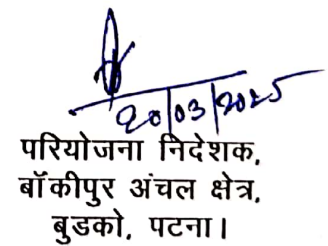 20/03/2025
परियोजना निदेशक,
बॉंकीपुर अंचल क्षेत्र,
बुडको, पटना।